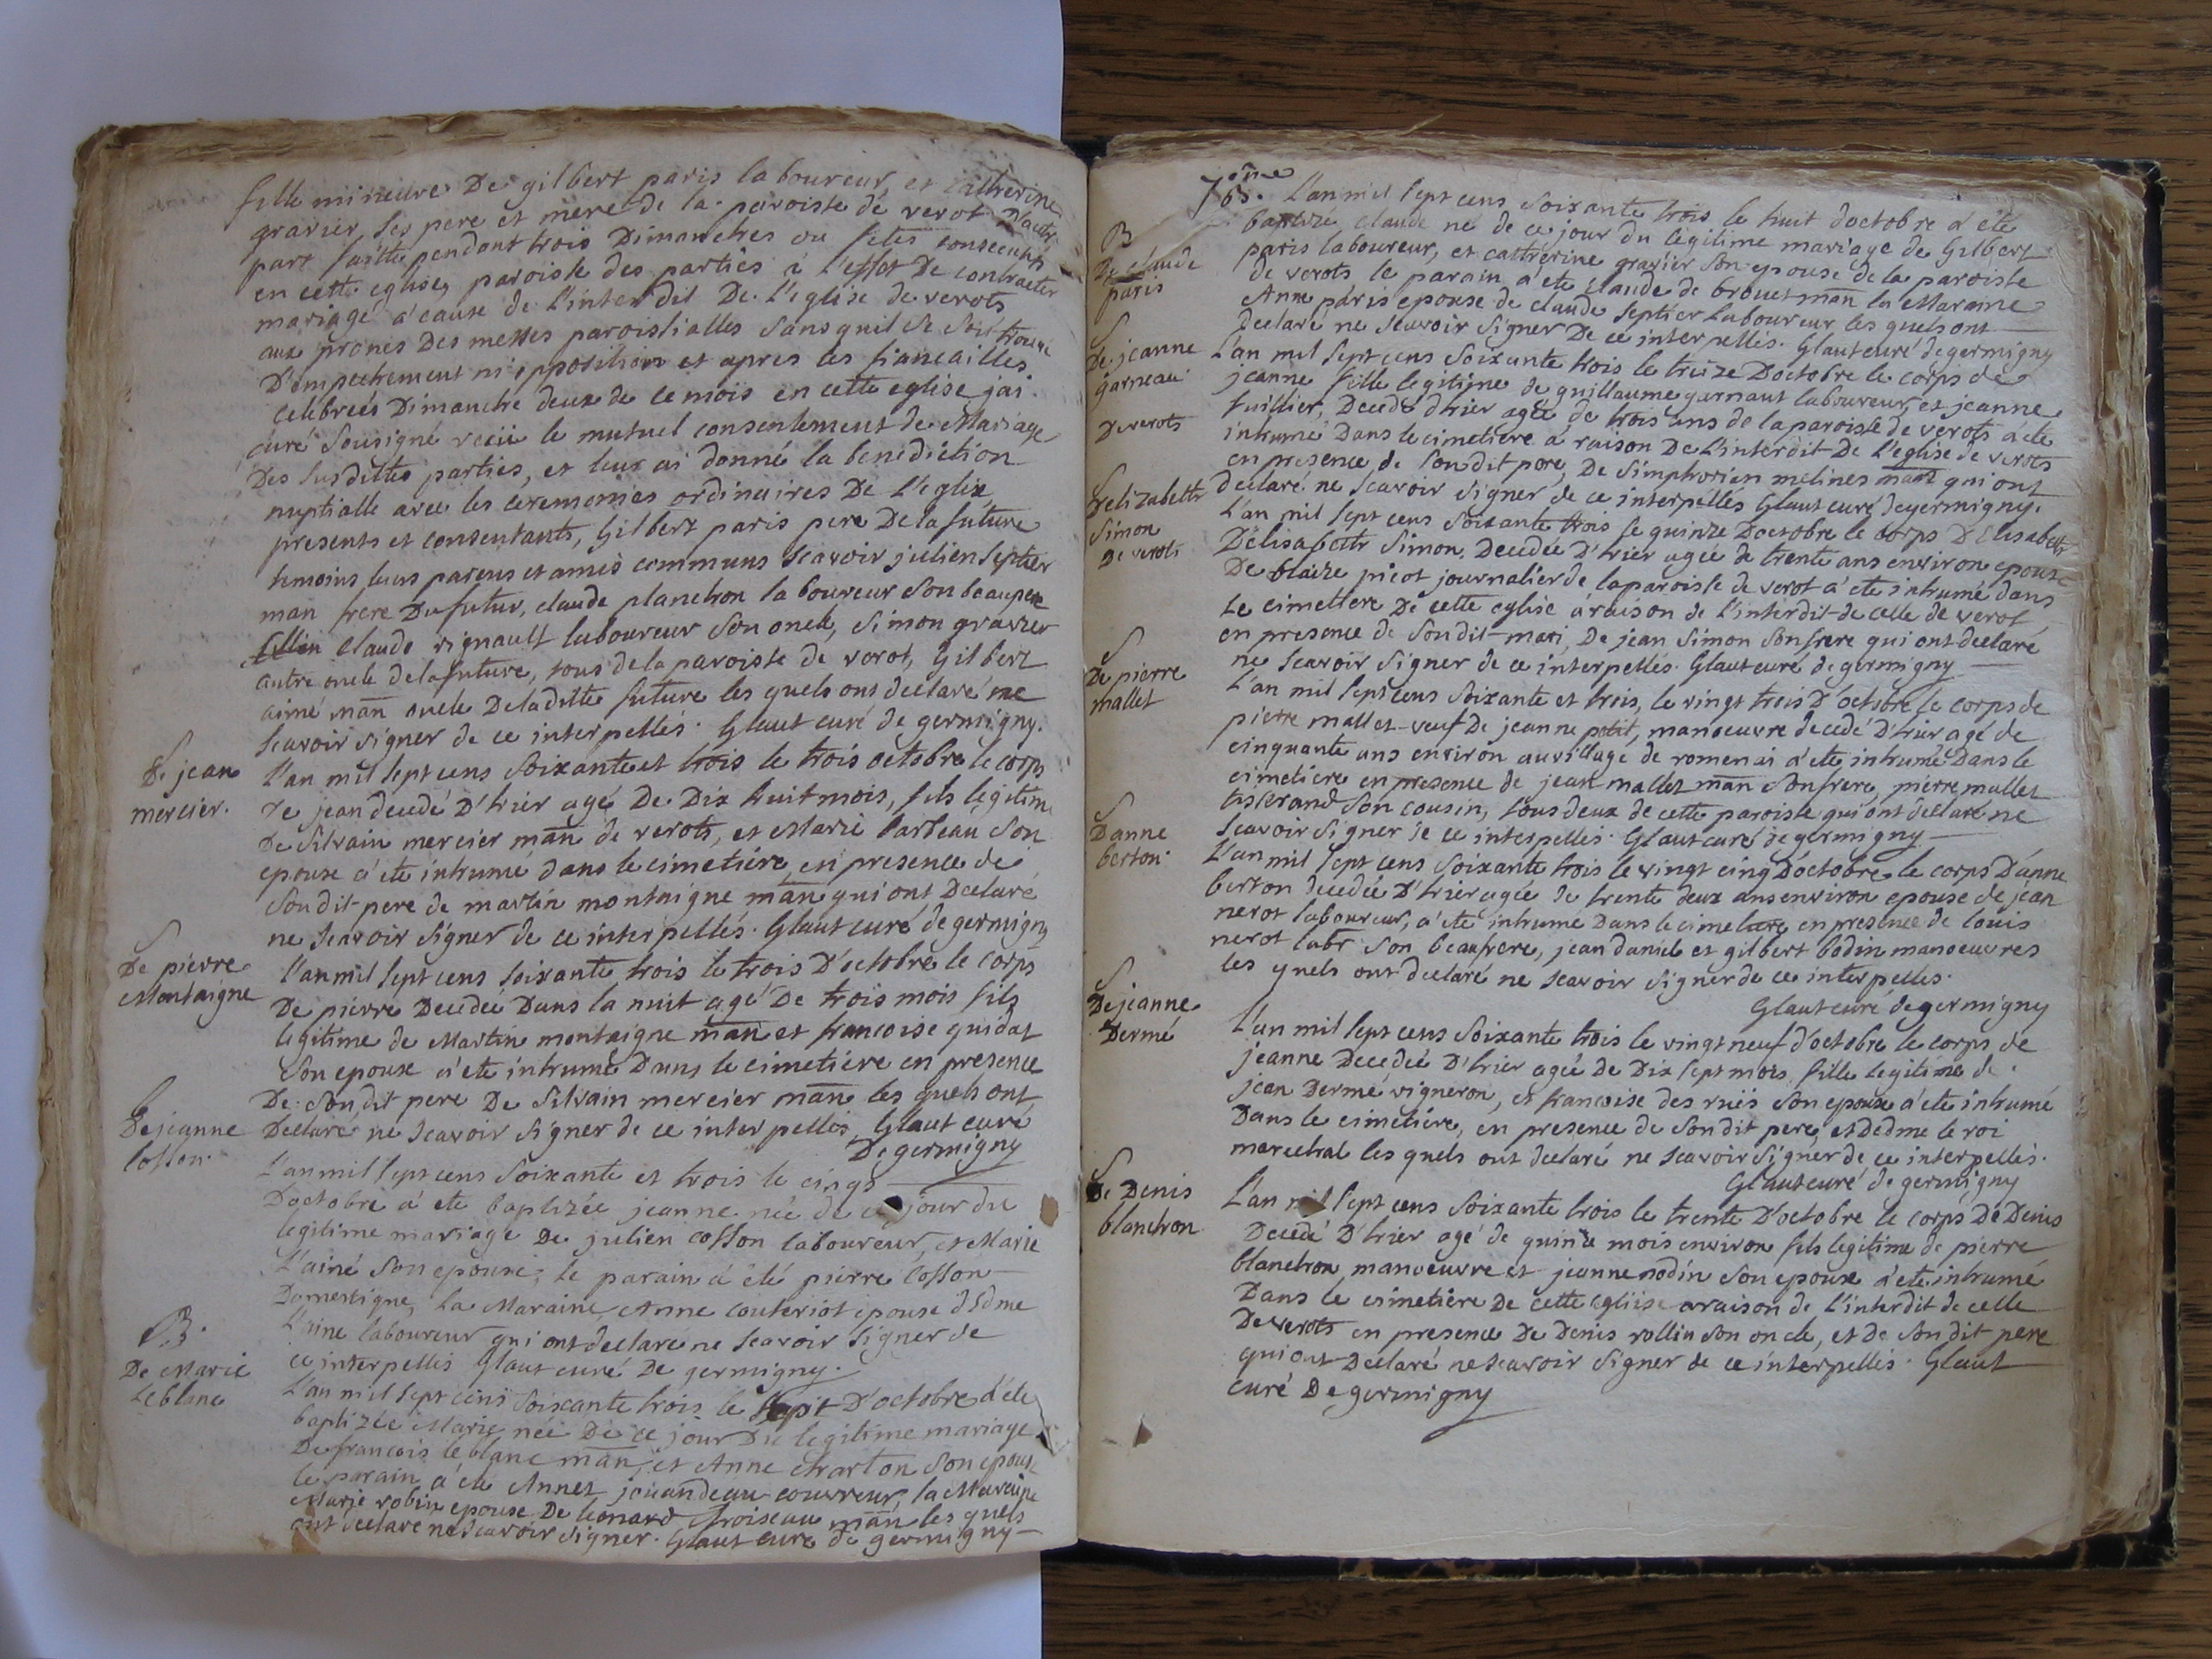 fille mineure De gilbert paris laboureur, et catherine
gravier, ses pere et mere de la paroisse de verot D'autre
part faitte pendant trois Dimanches ou fetes consecutifs
en cette eglise, paroisse des parties à l'effet De contracter
mariage a cause de l'interdit De L'eglise de verots
aux prones Des messes paroissialles sans quil se soit trouvé
D'empechement ni opposition et apres les fiancailles
celebreés Dimanche deux de ce mois en cette eglise jai
curé sousigné reciü le mutuel consentement de Mariage
Des susdittes parties, et leur ai donné la benediction
nuptialle avec les ceremonies ordinaires De L'eglise,
presents et consentants, Gilbert paris pere De la future
temoins leurs parens et amis communs scavoir julien septier
man frere Du futur, claude planchon laboureur son beaupere
claude rignault laboureur son oncle, simon gravier
autre oncle de la future, tous de la paroisse de verot, Gilbert
aimé man oncle De la ditte future les quels ont declaré ne
scavoir signer de ce interpellés. Glaut curé de germigny.
S
De jean
mercier.
L'an mil sept cens soixante et trois le trois octobre le corps
de jean decedé D'hier agé De Dix huit mois, fils legitime
De silvain mercier man de verots, et Marie barbeau son
epouse a été inhumé dans le cimetiére, en presence de
son dit pere de martin montaigne man qui ont Declaré
ne scavoir signer de ce interpellés. Glaut curé de germigny
S
De pierre
Montaigne
L'an mil sept cens soixante trois le trois D'octobre le corps
De pierre Decedée Dans la nuit agé De trois mois fils
legitime de Martin montaigne man et francoise guidat
son epouse a été inhumé Dans le cimetiére en presence
De son dit pere De silvain mercier man les quels ont
Declaré ne scavoir signer de ce interpellés, Glaut curé
De germigny
B
De jeanne
cosson.
L'an mil sept cens soixante et trois le cinqs
Doctobre a été baptizée jeanne née de ce jour du
legitime mariage De julien cosson laboureur, et Marie
L'ainé son epouse; le parain a été pierre cosson
Domestique, la Maraine Anne couteriot epouse d'Edme
L'aine laboureur qui ont declaré ne scavoir signer de
ce interpellés Glaut curé De germigny.
B.
De Marie
Leblanc
L'an mil sept cens soixante trois le sept D'octobre a été
baptizée Marie née De ce jour Du legitime mariage
De francois le blanc man, et Anne charton son epouse
le parain a été Annet joüandeau couvreur, la Maraine
Marie robin epouse De leonard froiseau man les quels
ont declaré ne scavoir signer. Glaut curé de germigny
763.
B
De claude
paris
L'an mil sept cens soixante trois le huit doctobre a été
baptizé claude né de ce jour du legitime mariage de Gilbert
paris laboureur, et catherine gravier son epouse de la paroisse
de verots le parain a été claude de brouet man la Maraine
Anne paris epouse de claude septier laboureur les quels ont
declaré ne scavoir signer De ce interpellés. Glaut curé de germigny
S
De jeanne
garneau
De verots
L'an mil sept cens soixante trois le treize D'octobre le corps de
jeanne fille legitime de guillaume garnaut laboureur, et jeanne
tuillier, Decedé d'hier agée de trois ans de la paroisse de verots a été
inhumé Dans le cimetiere a raison De L'interdit De L'eglise de verots
en presence, de son dit pere, De simphorien melines man qui ont
declaré ne scavoir signer de ce interpellés Glaut curé de germigny.
S
D'elizabeth
Simon
De verots
L'an mil sept cens soixante trois le quinze D'octobre le corps D'Elisabeth
D'elisabeth simon, Decedée D'hier agée de trente ans environ epouse
De blaize picot journalier de la paroisse de verot a été inhumé dans
Le cimetiere De cette eglise à raison de l'interdit de celle de verot
en presence de son dit mari, De jean simon son frere qui ont declaré
ne scavoir signer de ce interpellés. Glaut curé de germigny
S
De pierre
mallet
L'an mil sept cens soixante et trois, le vingt trois D'octobre le corps de
pierre mallet veuf De jeanne petit, manoeuvre decedé D'hier agé de
cinquante ans environ au village de romenai a été inhumé Dans le
cimetiere en presence de jean mallet man son frere, pierre mallet
tisserand son cousin, tous deux de cette paroisse qui ont declaré ne
scavoir signer de ce interpellés. Glaut curé de germigny
S
D'anne
berton
L'an mil sept cens soixante trois le vingt cinq D'octobre le corps D'anne
berton decedée D'hier agée de trente deux ans environ epouse de jean
nerot laboureur, a été inhumé Dans le cimetiere en presence de louis
nerot labr son beaufrere, jean daniel et gilbert bodin manoeuvres
les quels ont declaré ne scavoir signer de ce interpellés.
Glaut curé de germigny
S
De jeanne
Dermé
L'an mil sept cens soixante trois le vingt neuf d'octobre le corps de
jeanne Decedée D'hier agée de Dix sept mois fille legitime de
jean dermé vigneron, et francoise des ruis son epouse a été inhumé
Dans le cimetiére, en presence de son dit pere, et D'edme le roi
marechal les quels ont declaré ne scavoir signer de ce interpellés.
Glaut curé de germigny
S
De Denis
blanchon
L'an mil sept cens soixante trois le trente D'octobre le corps De Denis
Decedé D'hier agé de quinze mois environ fils legitime de pierre
blanchon manoeuvre et jeanne nodin son epouse a été inhumé
Dans le cimetiére De cette eglise a raison de l'interdit de celle
De verots en presence De Denis rollin son oncle, et De son dit pere
qui ont Declaré ne scavoir signer de ce interpellés. Glaut
curé De germigny